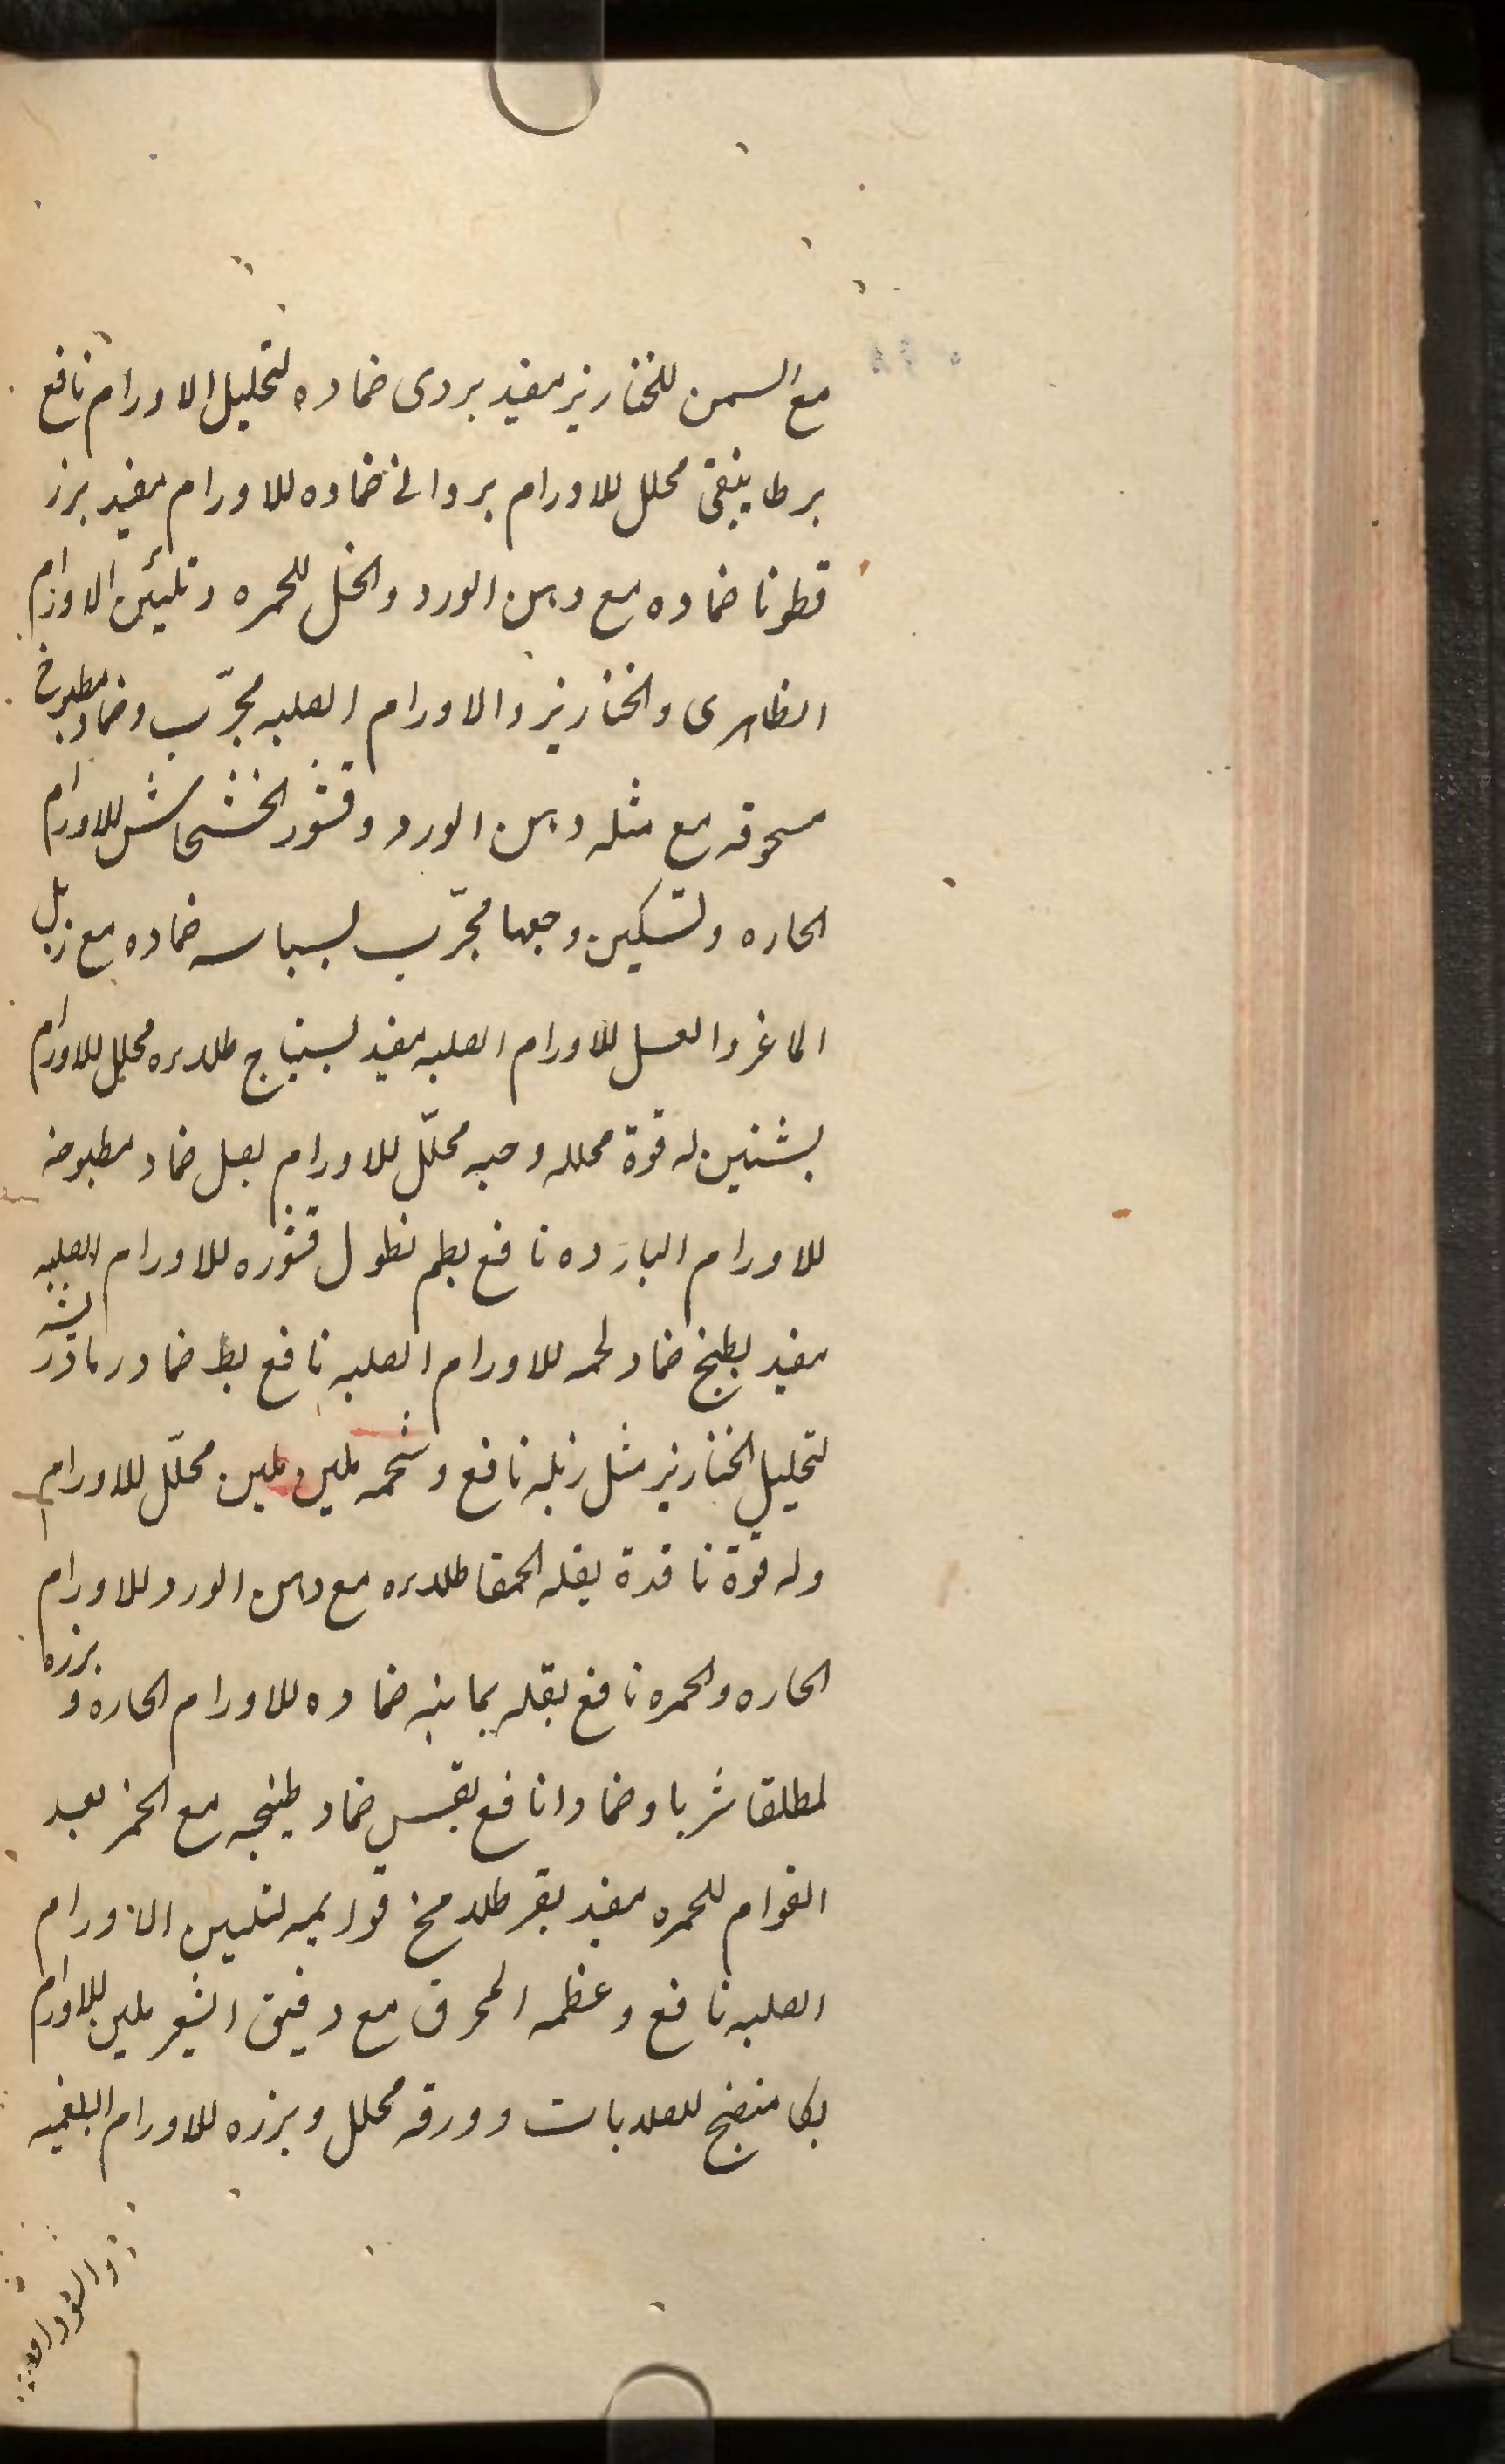 مع السمن للخنازیر مفید بردی ضماده لتحلیل الاورام نافع
برطاینقی محلل للاورام بروانی ضماده للاورام مفید بزر
قطونا ضماده مع دهن الورد والخل للحمره وتلیین الاورام
الظاهری والخنازیر والاورام الصلبه مجرّب وضماد مطبوخ
مسحوقه مع مثله دهن الورد وقشور الخشخاش للاورام
الحاره ولتسکین وجعها مجرّب بسباسه ضماده مع زبل
الماعز والعسل للاورام الصلبه مفید بستیناج طلاء محلل للاورام
بشنین له قوة محلله وحبه محلّل للاورام بصل ضماد مطبوخه
للاورام البارده نافع بطم نطول قشوره للاورام الصلبه
مفید بطیخ ضماد لحمه للاورام الصلبه نافع بط ضماد
لتحلیل الخنازیر مثل زبله نافع وشحمه ملین ملین محلّل للاورام
وله قوة نافذة بقله الحمقا طلاء مع دهن الورد للاورام
الحاره والحمره نافع بقله یمانیه ضماده للاورام الحاره و بزره
لمطلقا شربا وضمادا نافع بقس ضماد طبیخه مع الخمر بعد
القوام للحمره مفید بقر طلاء مخ قوایمه لتلیین الاورام
الصلبه نافع وعظمه المحرق مع دقیق الشعیر ملین للاورام
بکا منضج للصلابات وورقه محلل وبزره للاورام البلغمیه